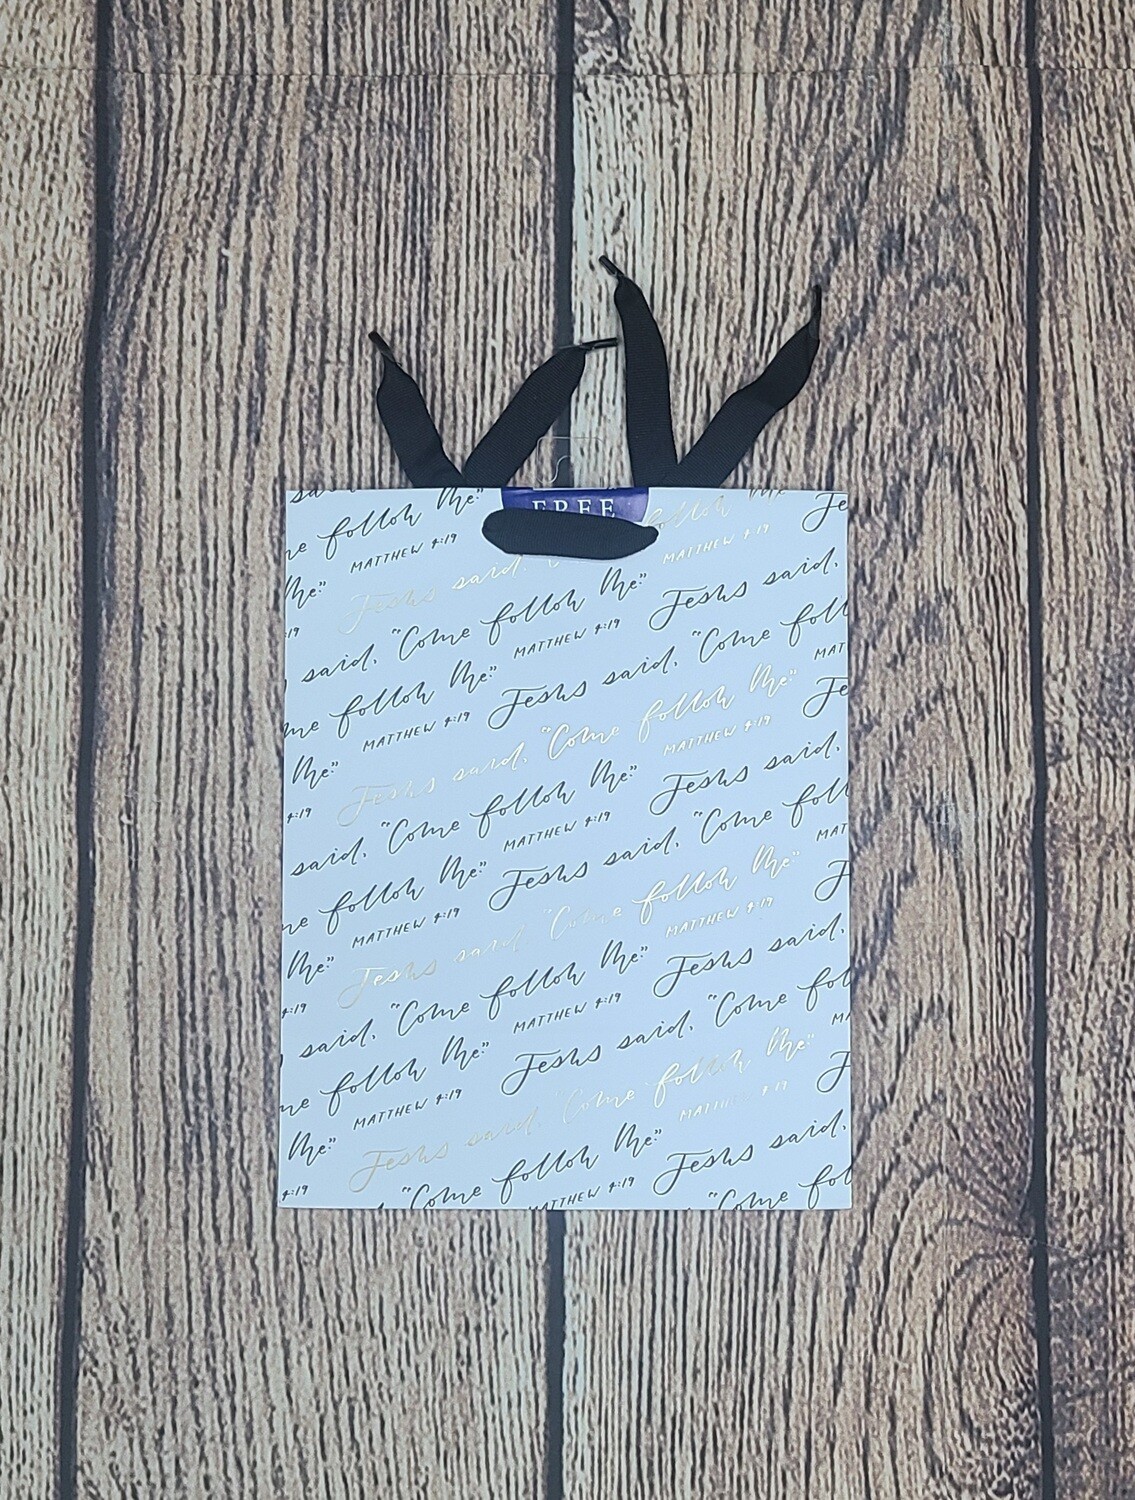 Me."
FREE
me follow Me." follow Me." Je
MATTHEW 4:19 MATTHEW 4:19
Me." Jesus said, Jesus said,
4:19 "Come follow Me."
said, MATTHEW 4:19 "Come foll
me follow Me." Jesus said, MAT
MATTHEW 4:19 "Come follow Me." Je
Me." Jesus said, MATTHEW 4:19
4:19 "Come follow Me." Jesus said,
said, MATTHEW 4:19 "Come foll
me follow Me." Jesus said, MAT
MATTHEW 4:19 "Come follow Me." J
Me." Jesus said, MATTHEW 4:19
4:19 "Come follow Me." Jesus said,
said, MATTHEW 4:19 "Come fol
me follow Me." Jesus said, MA
MATTHEW 4:19 "Come follow Me." J
Me." Jesus said, MATTHEW 4:19
4:19 "Come follow Me." Jesus said,
MATTHEW 4:19 "Come fol